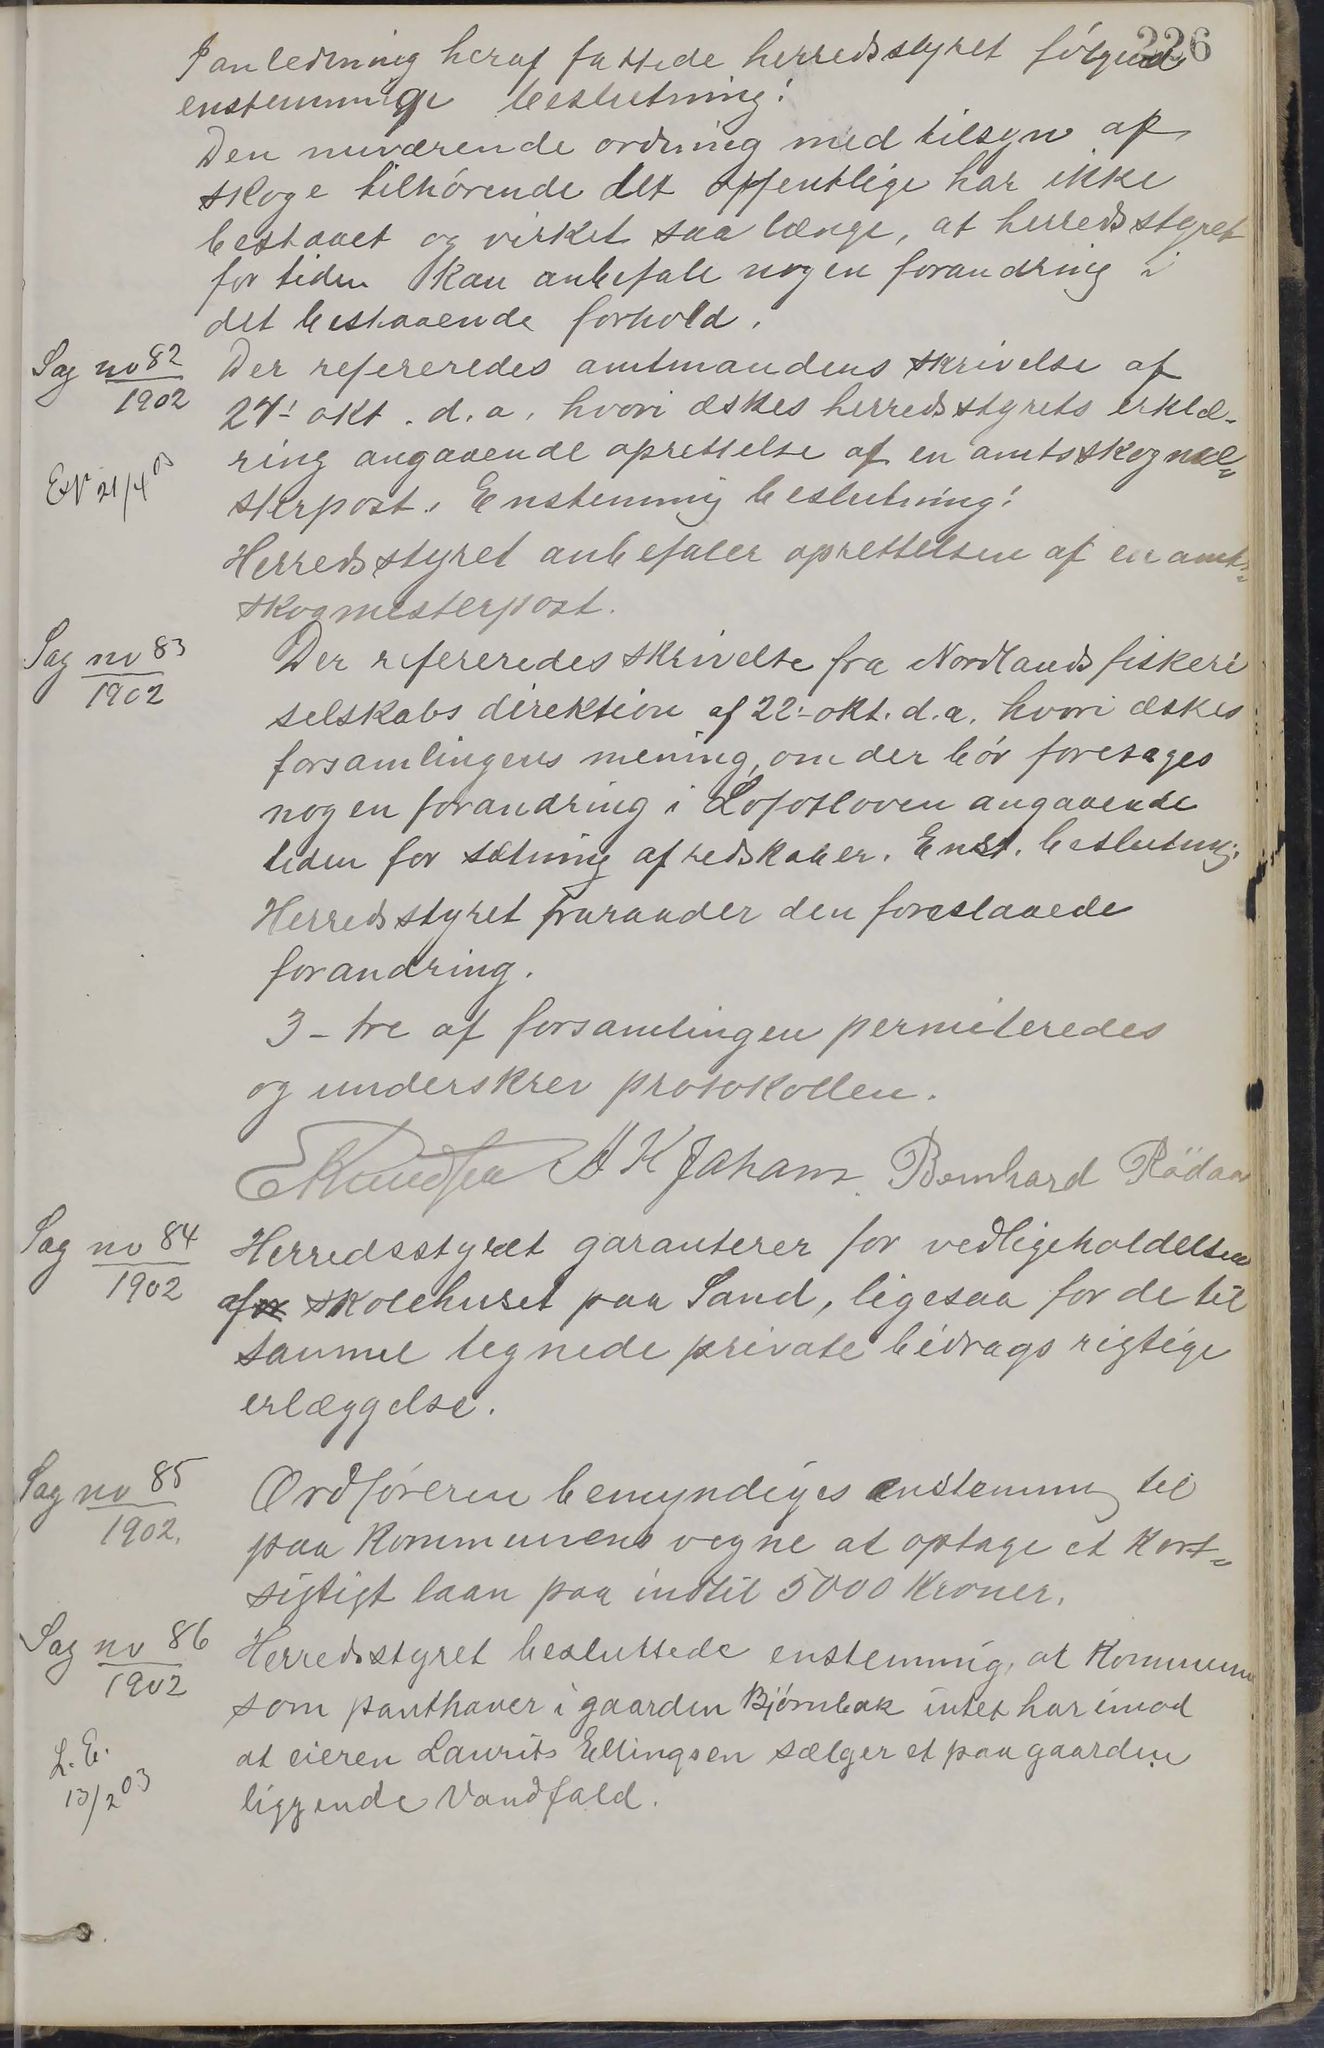 226
I anledning heraf fattede herredsstyret følgende
enstemmige beslutning:
Den nuværende ordning med tilsyn af
skoge tilhörende det offentlige har ikke
bestaaet og virket saa længe, at herredsstyret
for tiden kan anbefale nogen forandring i
det bestaaende forhold.
Sag no 82
1902
Der refereredes amtmandens skrivelse af
27' okt. d.a. hvori æskes herredsstyrets erklæ-
ring angaaende oprettelse af en amtsskogme-
sterpost. Enstemmig beslutning:
21/4 03
Herredsstyret anbefaler oprettelsen af en amts-
skogmesterpost.
Sag no 83
1902
Der refereredes skrivelse fra Nordlands fiskeri
selskabs direktion af 22'-okt. d.a. hvori æskes
forsamlingens mening, om der bör foretages
nogen forandring i Lofotloven angaaende
tiden for sætning af redskaber. Enst. beslutning:
Herredsstyret fraraader den foreslaaede
forandring.
3 - tre af forsamlingen permiteredes
og underskrev protokollen.
E Knudsen K Johans. Bernhard Rödaa
Sag no 84
1902
Herredsstyret garanterer for vedligeholdelsen
af skolehuset paa Sand, ligesaa for de til
samme tegnede private bidrags rigtige
erlæggelse.
Sag no 85
1902.
Ordföreren bemyndiges enstemmig til
paa kommunens vegne at optage et kort-
sigtigt laan paa indtil 5000 kroner.
Sag no 86
1902
Herredsstyret besluttede enstemmig, at kommunen
som panthaver i gaarden Bjørnbak intet har imod
at eieren Laurits Ellingsen sælger et paa gaarden
liggende Vandfald.
L. E.
13/2 03